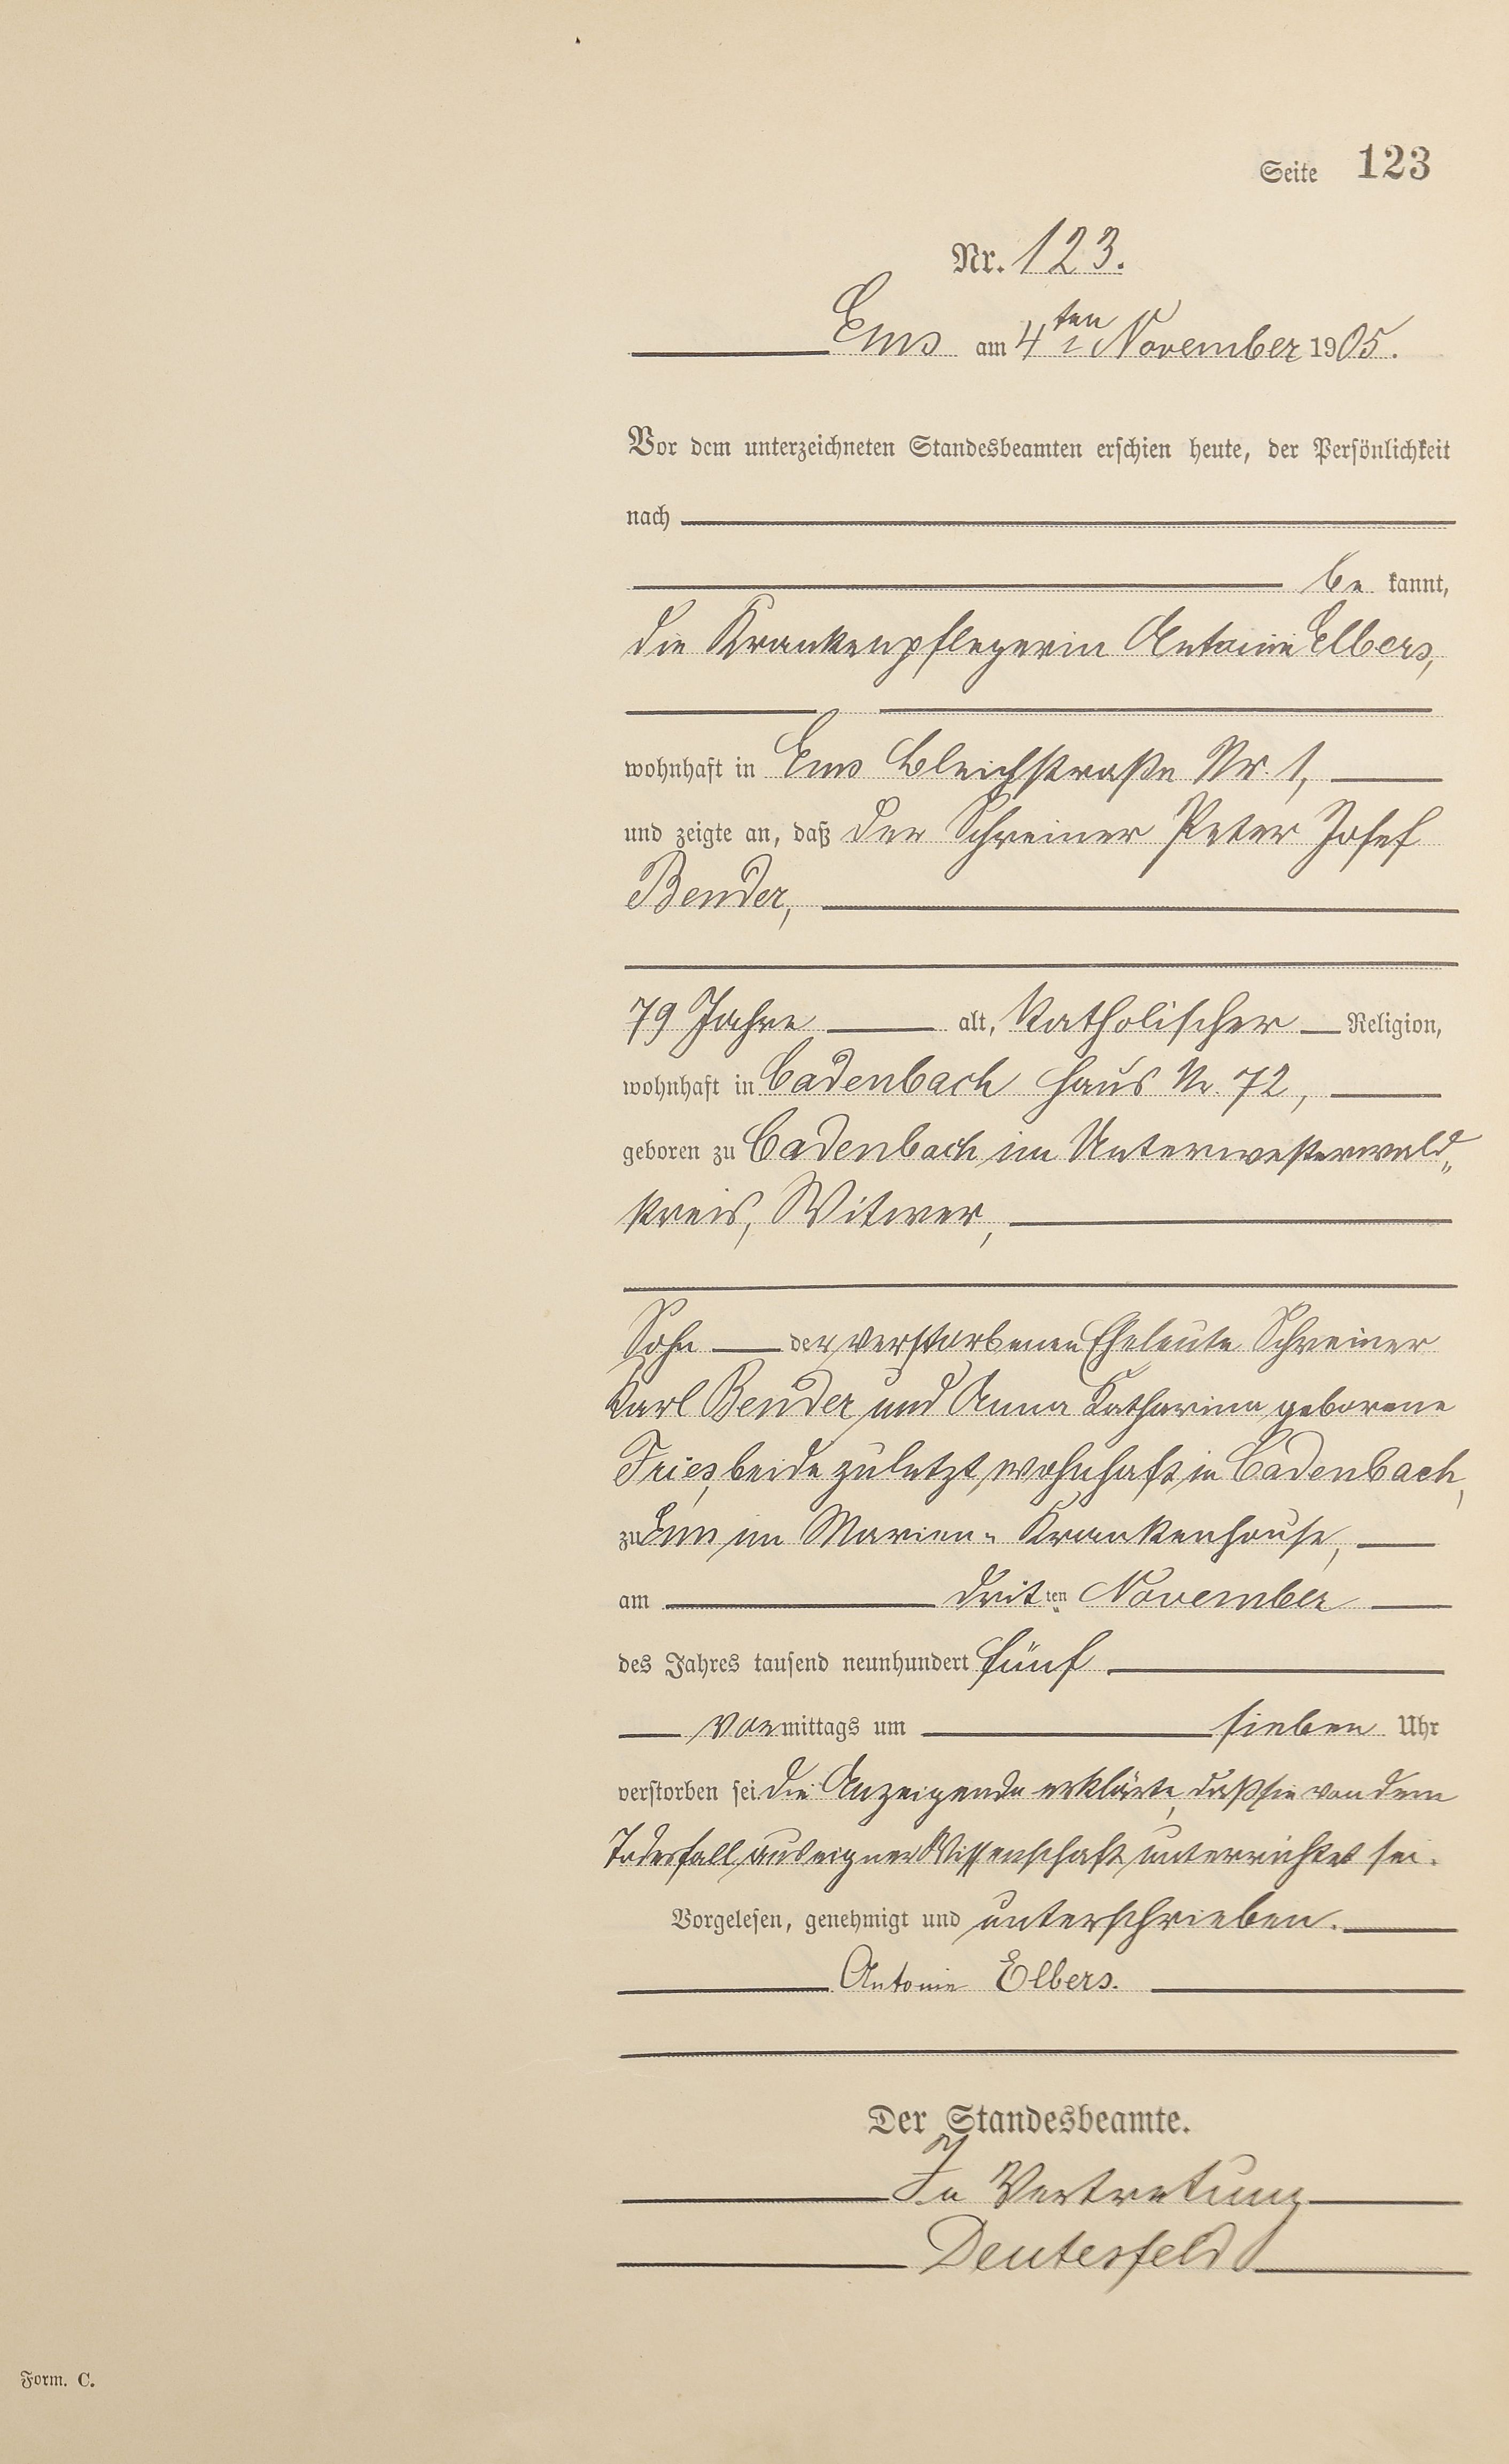 Seite 123
Nr. 123.
Ems am 4ten November 1905.
Vor dem unterzeichneten Standesbeamten erschien heute, der Persönlichkeit
nach
be kannt,
die Krankenpflegerin Antonie Elbers,
wohnhaft in Ems Bleichstraße Nr. 1,
und zeigte an, daß der Schreiner Peter Josef
Bender,
79 Jahre alt, katholischer Religion,
wohnhaft in Cadenbach Haus Nr. 72,
geboren zu Cadenbach im Unterwesterwald„
kreis, Witwer,
Sohn der verstorbenen Eheleute Schreiner
Karl Bender und Anna Katharina geborene
Fries, beide zuletzt wohnhaft in Cadenbach,
zu Ems im Marien„ Krankenhause,
am dritten November
des Jahres tausend neunhundert fünf
vormittags um sieben Uhr
verstorben sei. Die Anzeigende erklärte, daß sie von dem
Todesfall aus eigner Wissenschaft unterrichtet sei.
Vorgelesen, genehmigt und unterschrieben.
Antonie Elbers.
Der Standesbeamte.
In Vertretung
Deutesfeld
Form. C.